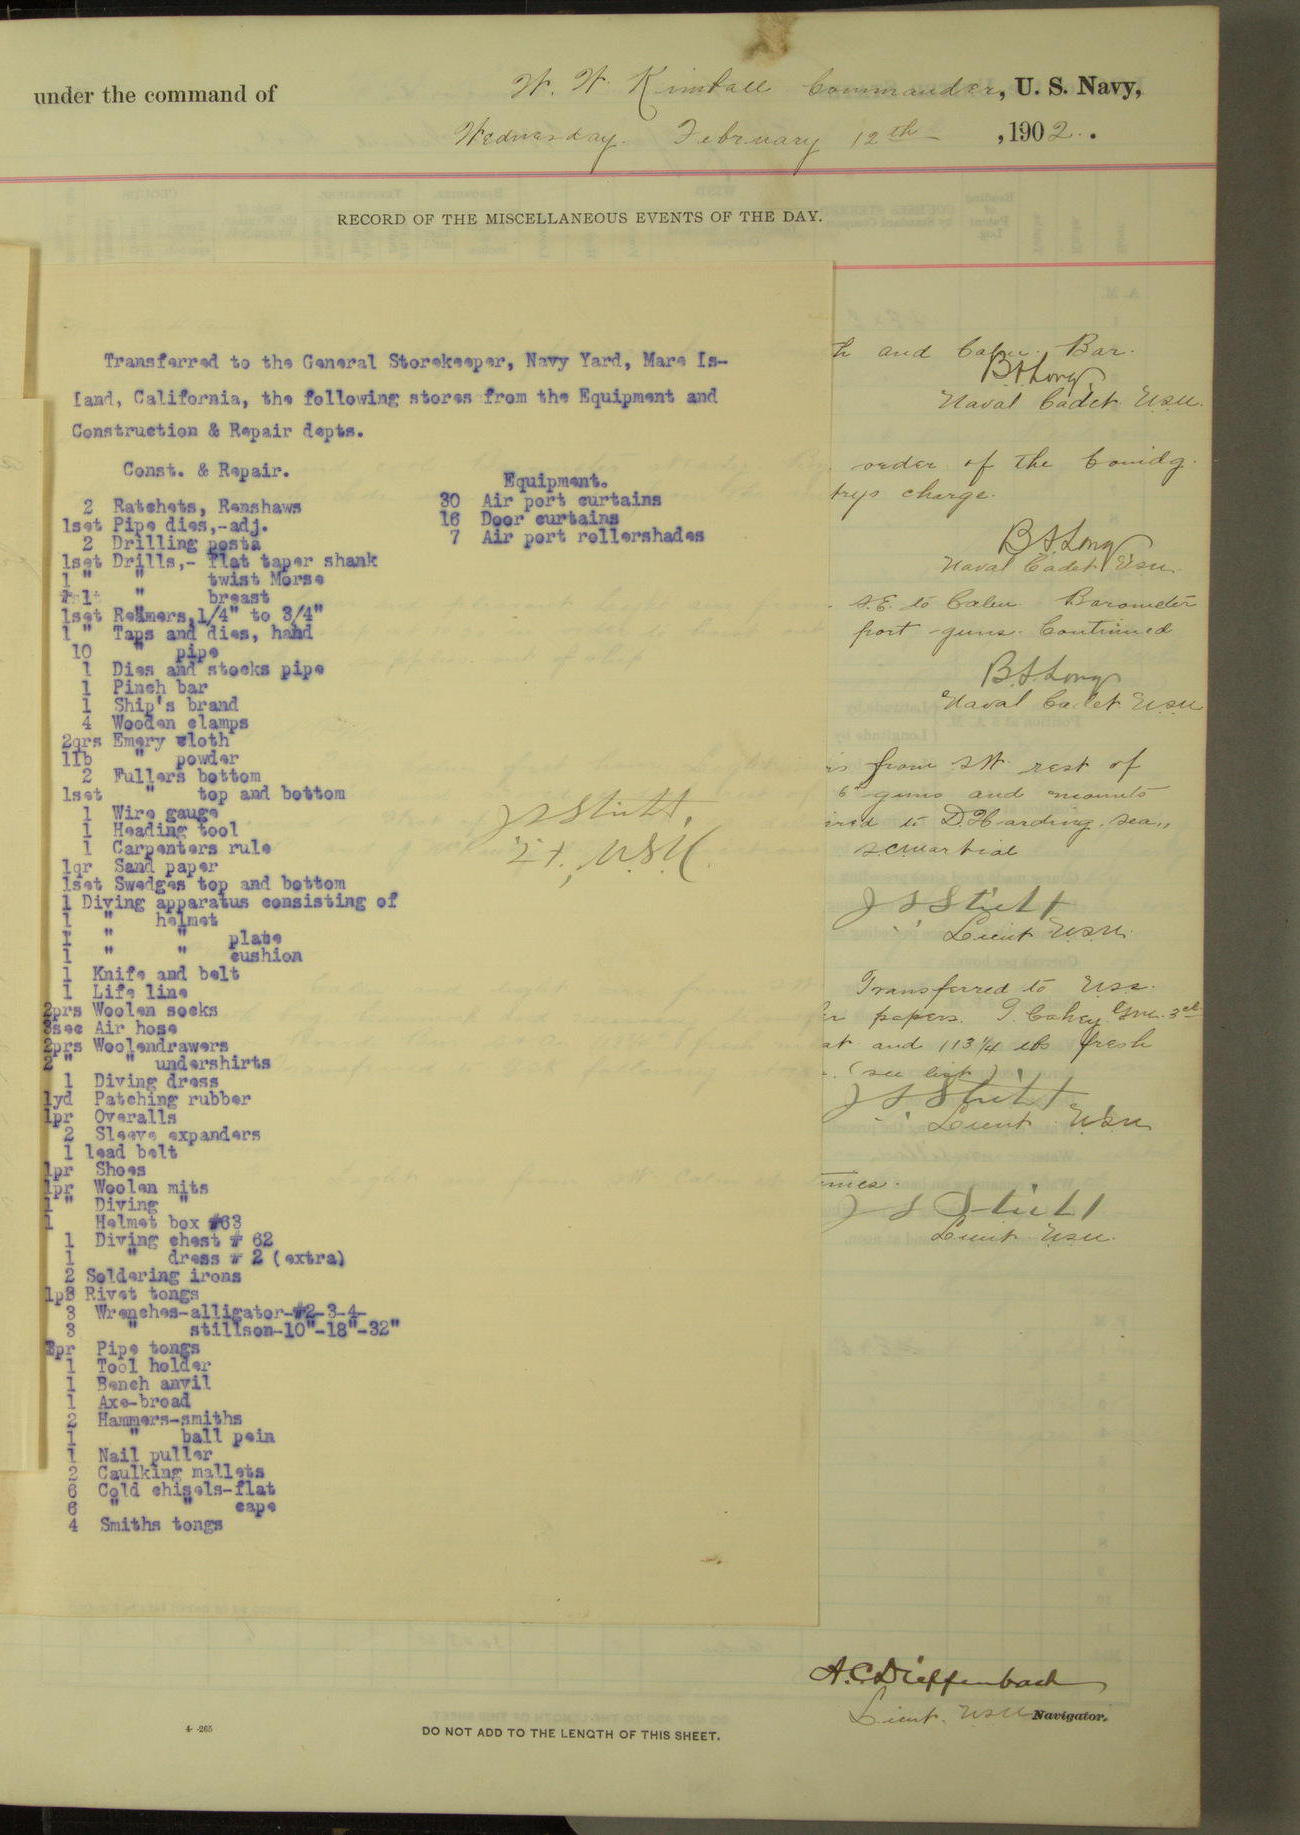 under the command of W. W. Kimball Commander, U. S. Navy,
Wednesday February 12th, 1902.
RECORD OF THE MISCELLANEOUS EVENTS OF THE DAY.
Transferred to the General Storekeeper, Navy Yard, Mare Is-
land, California, the following stores from the Equipment and
Construction & Repair depts.
Const. & Repair.
2 Ratchets, Renshaws
1set Pipe dies,-adj.
2 Drilling posts
1set Drills,- flat taper shank
1 " " twist Morse
1 " breast
1set Reamers,1/4" to 3/4"
1 " Taps and dies, hand
10 " pipe
1 Dies and stocks pipe
1 Pinch bar
1 Ship's brand
4 Wooden clamps
2qrs Emery cloth
1lb " powder
2 Fullers bottom
1set " top and bottom
1 Wire gauge
1 Heading tool
1 Carpenters rule
1qr Sand paper
1set Swedges top and bottom
1 Diving apparatus consisting of
1 " helmet
1 " " plate
1 " " cushion
1 Knife and belt
1 Life line
2prs Woolen socks
3sec Air hose
2prs Woolendrawers
2 " " undershirts
1 Diving dress
1yd Patching rubber
1pr Overalls
2 Sleeve expanders
1 lead belt
1pr Shoes
1pr Woolen mits
1 " Diving "
1 Helmet box #63
1 Diving chest # 62
1 " dress # 2 (extra)
2 Soldering irons
Rivet tongs
3 Wrenches-alligator-#2-3-4-
3 " stillson-10"-18"-32"
pr Pipe tongs
1 Tool holder
1 Bench anvil
1 Axe-broad
2 Hammers-smiths
1 " ball pein
1 Nail puller
2 Caulking mallets
6 Cold chisels-flat
6 " " cape
4 Smiths tongs
Equipment.
30 Air port curtains
16 Door curtains
7 Air port rollershades
Lt., U.S.N.
and Calm. Bar.
B A Long
Naval Cadet USN.
order of the Comdg.
charge.
B A Long
Naval Cadet USN
S.E. to Calm Barometer
port guns. Continued
B A Long
Naval Cadet USN
from SW. rest of
6" guns and mounts
to D. Harding, sea.,
Lieut USN.
Transferred to USS.
papers.
and 113¼ lbs fresh
(see list)
Lieut. USN
Lieut USN.
A.C. Dieffenbach
Lieut. USN Navigator.
4--265
DO NOT ADD TO THE LENGTH OF THIS SHEET.